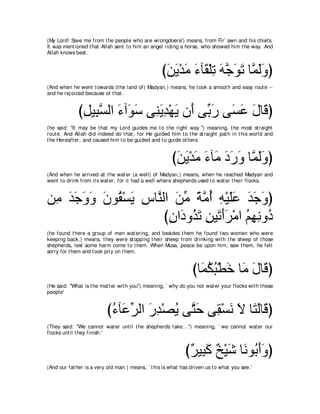 (My Lord! Save me from the people who are wrongdoers!) means, from Fir`awn and his chiefs.
It was mentioned that Allah sent to him an angel riding a horse, who showed him the way. And
Allah knows best.
﴿وَلَمَّا تَوَجَّهَ تِلْقَآءَ مَدْيَنَ﴾
(And when he went towards (the land of) Madyan,) means, he took a smooth and easy route --
and he rejoiced because of that.
﴿قَالَ عَسَى رَبِّى أَن يَهْدِيَنِى سَوَآءَ السَّبِيلِ﴾
(he said: "It may be that my Lord guides me to the right way.") meaning, the most straight
route. And Allah did indeed do that, for He guided him to the straight path in this world and
the Hereafter, and caused him to be guided and to guide others.
﴿وَلَمَّا وَرَدَ مَآءَ مَدْيَنَ﴾
(And when he arrived at the water (a well) of Madyan,) means, when he reached Madyan and
went to drink from its water, for it had a well where shepherds used to water their flocks,
﴿وَجَدَ عَلَيْهِ أُمَّةً مِّنَ النَّاسِ يَسْقُونَ وَوَجَدَ مِن
دُونِهِمُ امْرَأَتَيْنِ تَذُودَانِ﴾
(he found there a group of men watering, and besides them he found two women who were
keeping back.) means, they were stopping their sheep from drinking with the sheep of those
shepherds, lest some harm come to them. When Musa, peace be upon him, saw them, he felt
sorry for them and took pity on them.
﴿قَالَ مَا خَطْبُكُمَا﴾
(He said: "What is the matter with you") meaning, `why do you not water your flocks with these
people'
﴿قَالَتَا لاَ نَسْقِى حَتَّى يُصْدِرَ الرِّعَآءُ﴾
(They said: "We cannot water until the shepherds take...") meaning, `we cannot water our
flocks until they finish.'
﴿وَأَبُونَا شَيْخٌ كَبِيرٌ﴾
(And our father is a very old man.) means, `this is what has driven us to what you see.'